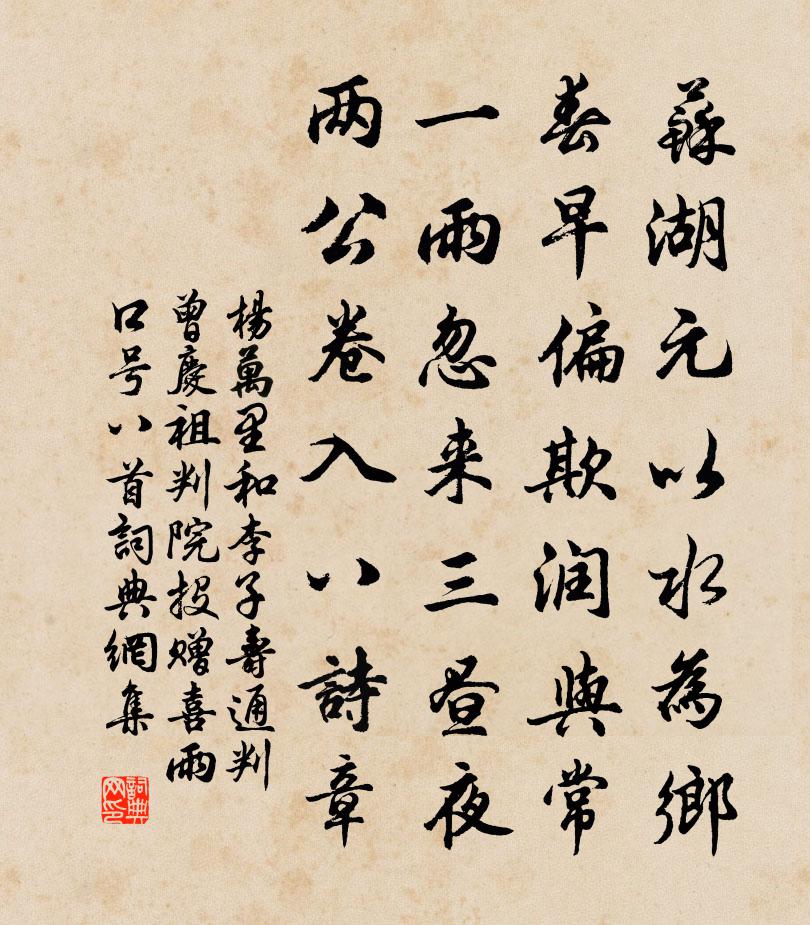 蘇湖元以水為鄉
春早偏欺润與常
一雨忽来三昼夜
两公卷入八詩章
楊萬里和李子壽通判
曾慶祖判院投贈喜雨
口号八首詞典網集
詞典网印